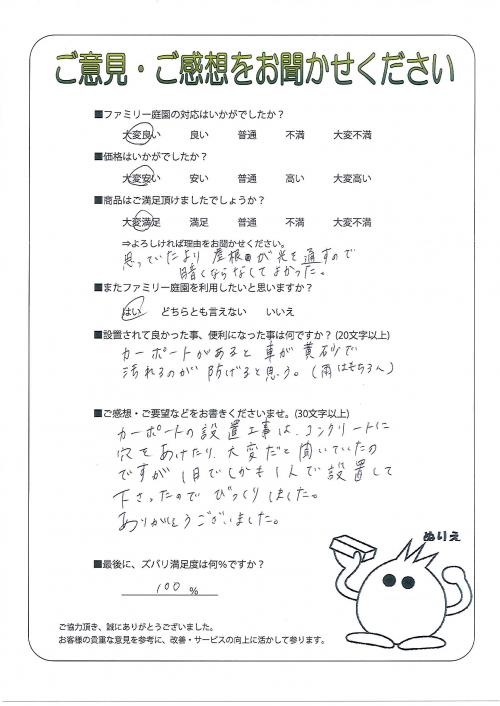 ご意見・ご感想をお聞かせください
■ファミリー庭園の対応はいかがでしたか?
大変良い 良い 普通 不満 大変不満
■価格はいかがでしたか?
大変安い 安い 普通 高い 大変高い
■商品はご満足頂けましたでしょうか?
大変満足 満足 普通 不満 大変不満
⇒よろしければ理由をお聞かせください。
思っていたより 屋根が光を通すので
暗くならなくてよかった。
■またファミリー庭園を利用したいと思いますか?
はい どちらとも言えない いいえ
■設置されて良かった事、便利になった事は何ですか? (20文字以上)
カーポートがあると 車が 黄砂で
汚れるのが 防げると思う。(雨はもちろん)
■ご感想・ご要望などをお書きくださいませ。(30文字以上)
カーポートの設置工事は、コンクリートに
穴をあけたり、大変だと聞いていたの
ですが 1日でしかも1人で設置して
下さったので びっくりしました。
ありがとうございました。
ぬりえ
■最後に、ズバリ満足度は何%ですか?
100 %
ご協力頂き、誠にありがとうございました。
お客様の貴重な意見を参考に、改善・サービスの向上に活かして参ります。